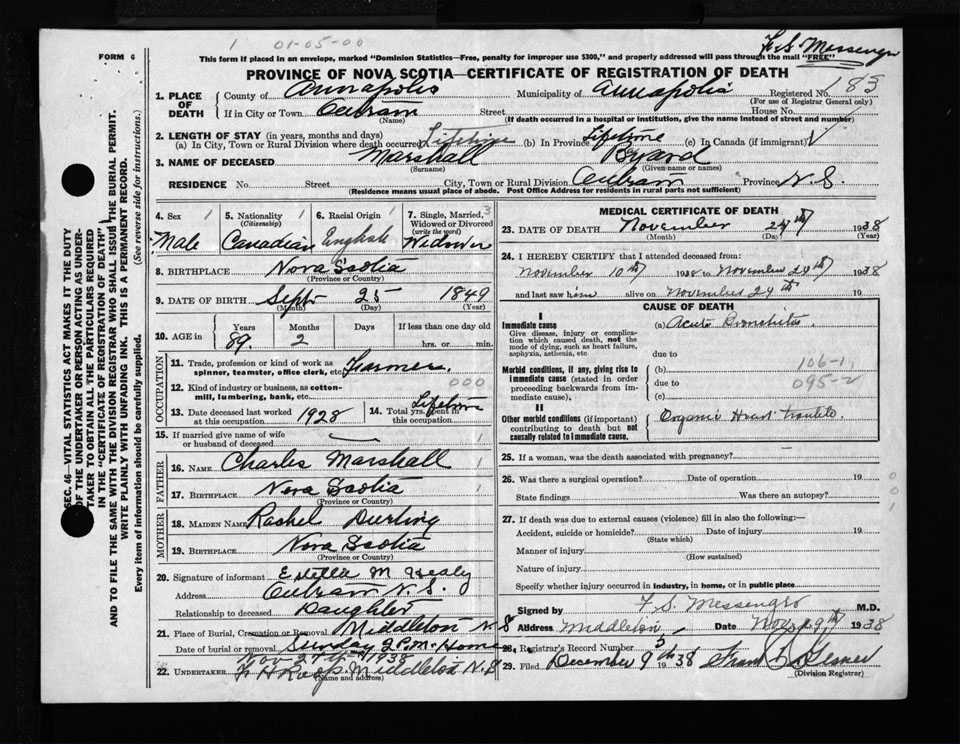 1 01-05-00
F. S. Messenger
FORM 6
This form if placed in an envelope, marked "Dominion Statistics—Free, penalty for improper use $300," and properly addressed will pass through the mail "FREE"
PROVINCE OF NOVA SCOTIA—CERTIFICATE OF REGISTRATION OF DEATH
1. PLACE OF DEATH County of Annapolis Municipality of Annapolis Registered No. 183
(For use of Registrar General only)
If in City or Town Outram Street House No.
(Name) (If death occurred in a hospital or institution, give the name instead of street and number)
2. LENGTH OF STAY (in years, months and days)
(a) In City, Town or Rural Division where death occurred Lifetime (b) In Province Lifetime (c) In Canada (if immigrant)
3. NAME OF DECEASED Marshall Byard
(Surname) (Given name or names)
RESIDENCE No. Street City, Town or Rural Division Outram Province N.S.
(Residence means usual place of abode. Post Office Address for residents in rural parts not sufficient)
SEC. 46—VITAL STATISTICS ACT MAKES IT THE DUTY
OF THE UNDERTAKER OR PERSON ACTING AS UNDER-
TAKER TO OBTAIN ALL THE PARTICULARS REQUIRED
IN THE "CERTIFICATE OF REGISTRATION OF DEATH"
AND TO FILE THE SAME WITH THE DIVISION REGISTRAR WHO SHALL ISSUE THE BURIAL PERMIT.
WRITE PLAINLY WITH UNFADING INK. THIS IS A PERMANENT RECORD.
Every item of information should be carefully supplied. (See reverse side for instructions.)
4. Sex 1 5. Nationality 1 6. Racial Origin 1 7. Single, Married, 3
(Citizenship) Widowed or Divorced
(write the word)
Male Canadian English Widower
8. BIRTHPLACE Nova Scotia
(Province or Country)
9. DATE OF BIRTH Sept 25 1849
(Month) (Day) (Year)
10. AGE in Years Months Days If less than one day old
89 2 hrs. or min.
OCCUPATION
11. Trade, profession or kind of work as
spinner, teamster, office clerk, etc. Farmer
12. Kind of industry or business, as cotton-
mill, lumbering, bank, etc. 000
13. Date deceased last worked
at this occupation 1928
14. Total yrs. spent in
this occupation Lifetime
15. If married give name of wife
or husband of deceased
FATHER
16. NAME Charles Marshall 1
17. BIRTHPLACE Nova Scotia 1
(Province or Country)
MOTHER
18. MAIDEN NAME Rachel Durling
19. BIRTHPLACE Nova Scotia
(Province or Country)
20. Signature of informant Estella M Healy
Address Outram N.S.
Relationship to deceased Daughter
21. Place of Burial, Cremation or Removal Middleton N.S
Date of burial or removal Sunday 2 P.M. Home
Nov 27th 1938
22. UNDERTAKER Middleton N.S
(Name and address)
MEDICAL CERTIFICATE OF DEATH
23. DATE OF DEATH November 24th 1938
(Month) (Day) (Year)
24. I HEREBY CERTIFY that I attended deceased from:
November 10th 1938 to November 24th 1938
and last saw him alive on November 24th 19
CAUSE OF DEATH
I
Immediate cause (a) Acute Bronchitis
Give disease, injury or complica-
tion which caused death, not the
mode of dying, such as heart failure,
asphyxia, asthenia, etc due to
Morbid conditions, if any, giving rise to (b) 106-1
immediate cause (stated in order due to 095-2
proceeding backwards from im-
mediate cause). (c)
II
Other morbid conditions (if important) Organic Heart trouble
contributing to death but not
causally related to immediate cause.
25. If a woman, was the death associated with pregnancy?
26. Was there a surgical operation? Date of operation 19
State findings Was there an autopsy?
001
27. If death was due to external causes (violence) fill in also the following:—
Accident, suicide or homicide? Date of injury 19
(State which)
Manner of injury
(How sustained)
Nature of injury
Specify whether injury occurred in industry, in home, or in public place
Signed by F. S. Messenger M.D.
Address Middleton Date Nov 29th 1938
28. Registrar's Record No. 5
29. Filed December 9th 1938
(Division Registrar)